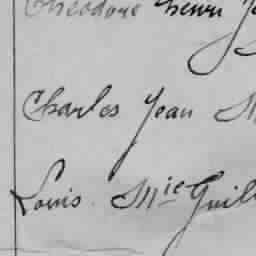 Théodore Henri
Charles Jean
Louis Mie Guil